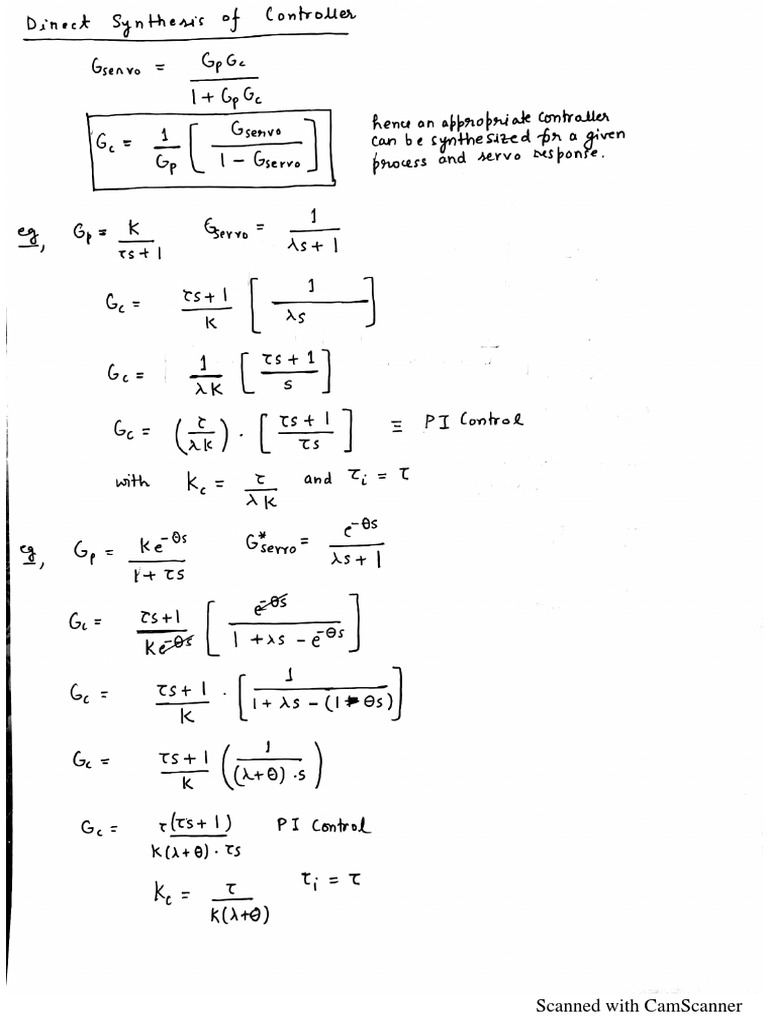 Direct Synthesis of Controller
G_servo = G_p G_c / (1 + G_p G_c)
G_c = 1/G_p [ G_servo / (1 − G_servo) ]
hence an appropriate controller
can be synthesized for a given
process and servo response.
eg, G_p = K / (τs + 1)    G_servo = 1 / (λs + 1)
G_c = (τs + 1)/K [ 1 / λs ]
G_c = 1/(λK) [ (τs + 1) / s ]
G_c = (τ/(λK)) · [ (τs + 1) / τs ] ≡ PI Control
with K_c = τ/(λK) and τ_i = τ
eg, G_p = K e^(−θs) / (1 + τs)    G*_servo = e^(−θs) / (λs + 1)
G_c = (τs + 1)/(K e^(−θs)) [ e^(−θs) / (1 + λs − e^(−θs)) ]
G_c = (τs + 1)/K · [ 1 / (1 + λs − (1 − θs)) ]
G_c = (τs + 1)/K ( 1 / ((λ+θ)·s) )
G_c = τ(τs + 1) / (K(λ+θ)·τs)    PI Control
K_c = τ / (K(λ+θ))    τ_i = τ
Scanned with CamScanner